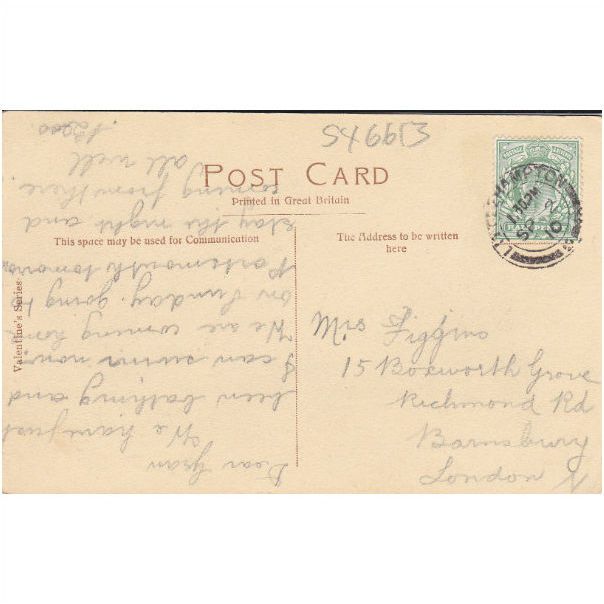 POST CARD
Printed in Great Britain
This space may be used for Communication
The Address to be written
here
Valentine's Series
LITTLEHAMPTON
SP
10
HALFPENNY
Mrs Figgins
15 Boxworth Grove
Richmond Rd
Barnsbury
London N
Dear Gran
We have just
been bathing and
I can swim now
We are coming home
on Sunday. going to
Portsmouth tomorrow
stay the night and
coming from there
all well